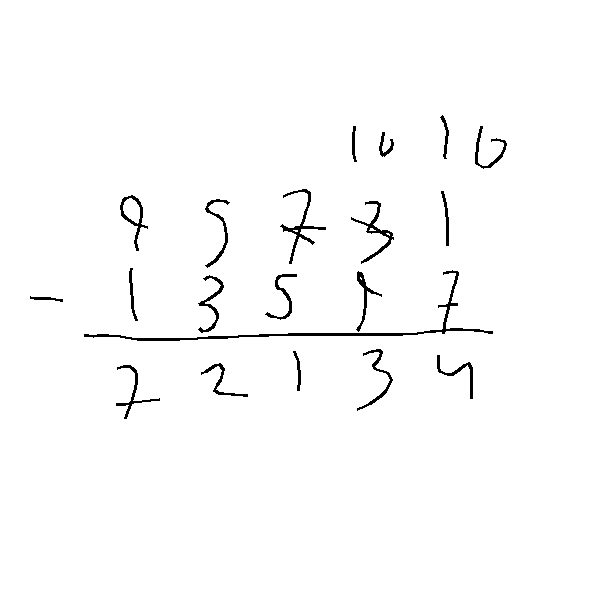 10 10
9 5 7 3 1
- 1 3 5 9 7
7 2 1 3 4